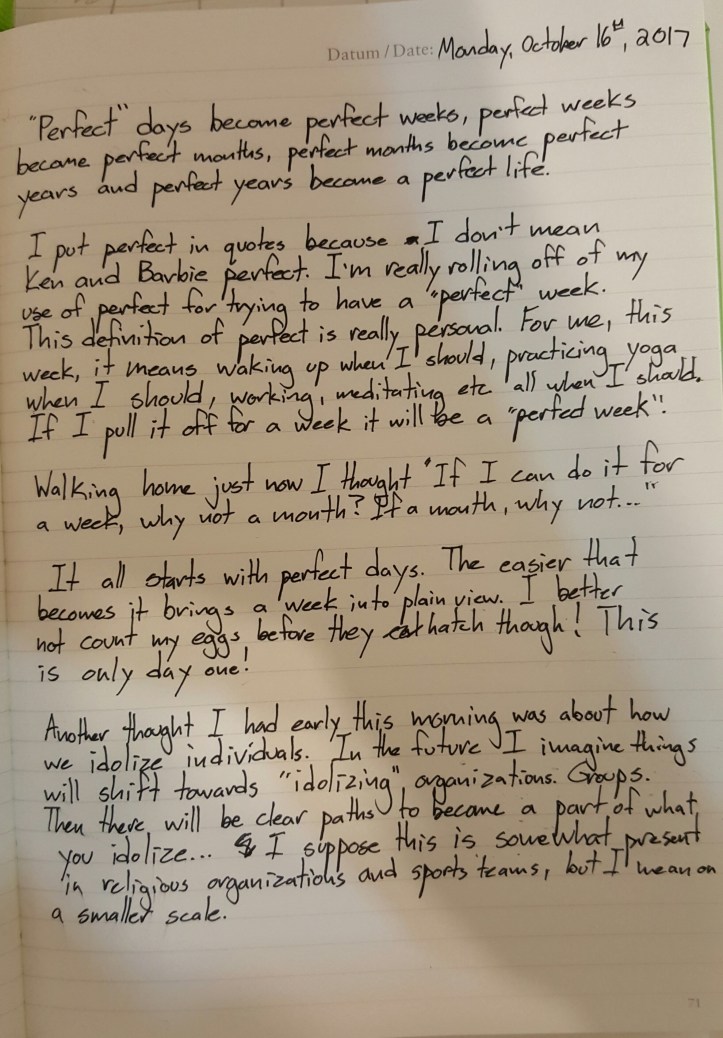 Datum / Date: Monday, October 16th, 2017
"Perfect" days become perfect weeks, perfect weeks
become perfect months, perfect months become perfect
years and perfect years become a perfect life.
I put perfect in quotes because I don't mean
Ken and Barbie perfect. I'm really rolling off of my
use of perfect for trying to have a "perfect" week.
This definition of perfect is really personal. For me, this
week, it means waking up when I should, practicing yoga
when I should, working, meditating etc all when I should.
If I pull it off for a week it will be a "perfect week".
Walking home just now I thought "If I can do it for
a week, why not a month? If a month, why not..."
It all starts with perfect days. The easier that
becomes it brings a week into plain view. I better
not count my eggs before they hatch though! This
is only day one!
Another thought I had early this morning was about how
we idolize individuals. In the future I imagine things
will shift towards "idolizing" organizations. Groups.
Then there will be clear paths to become a part of what
you idolize... I suppose this is somewhat present
in religious organizations and sports teams, but I mean on
a smaller scale.
71